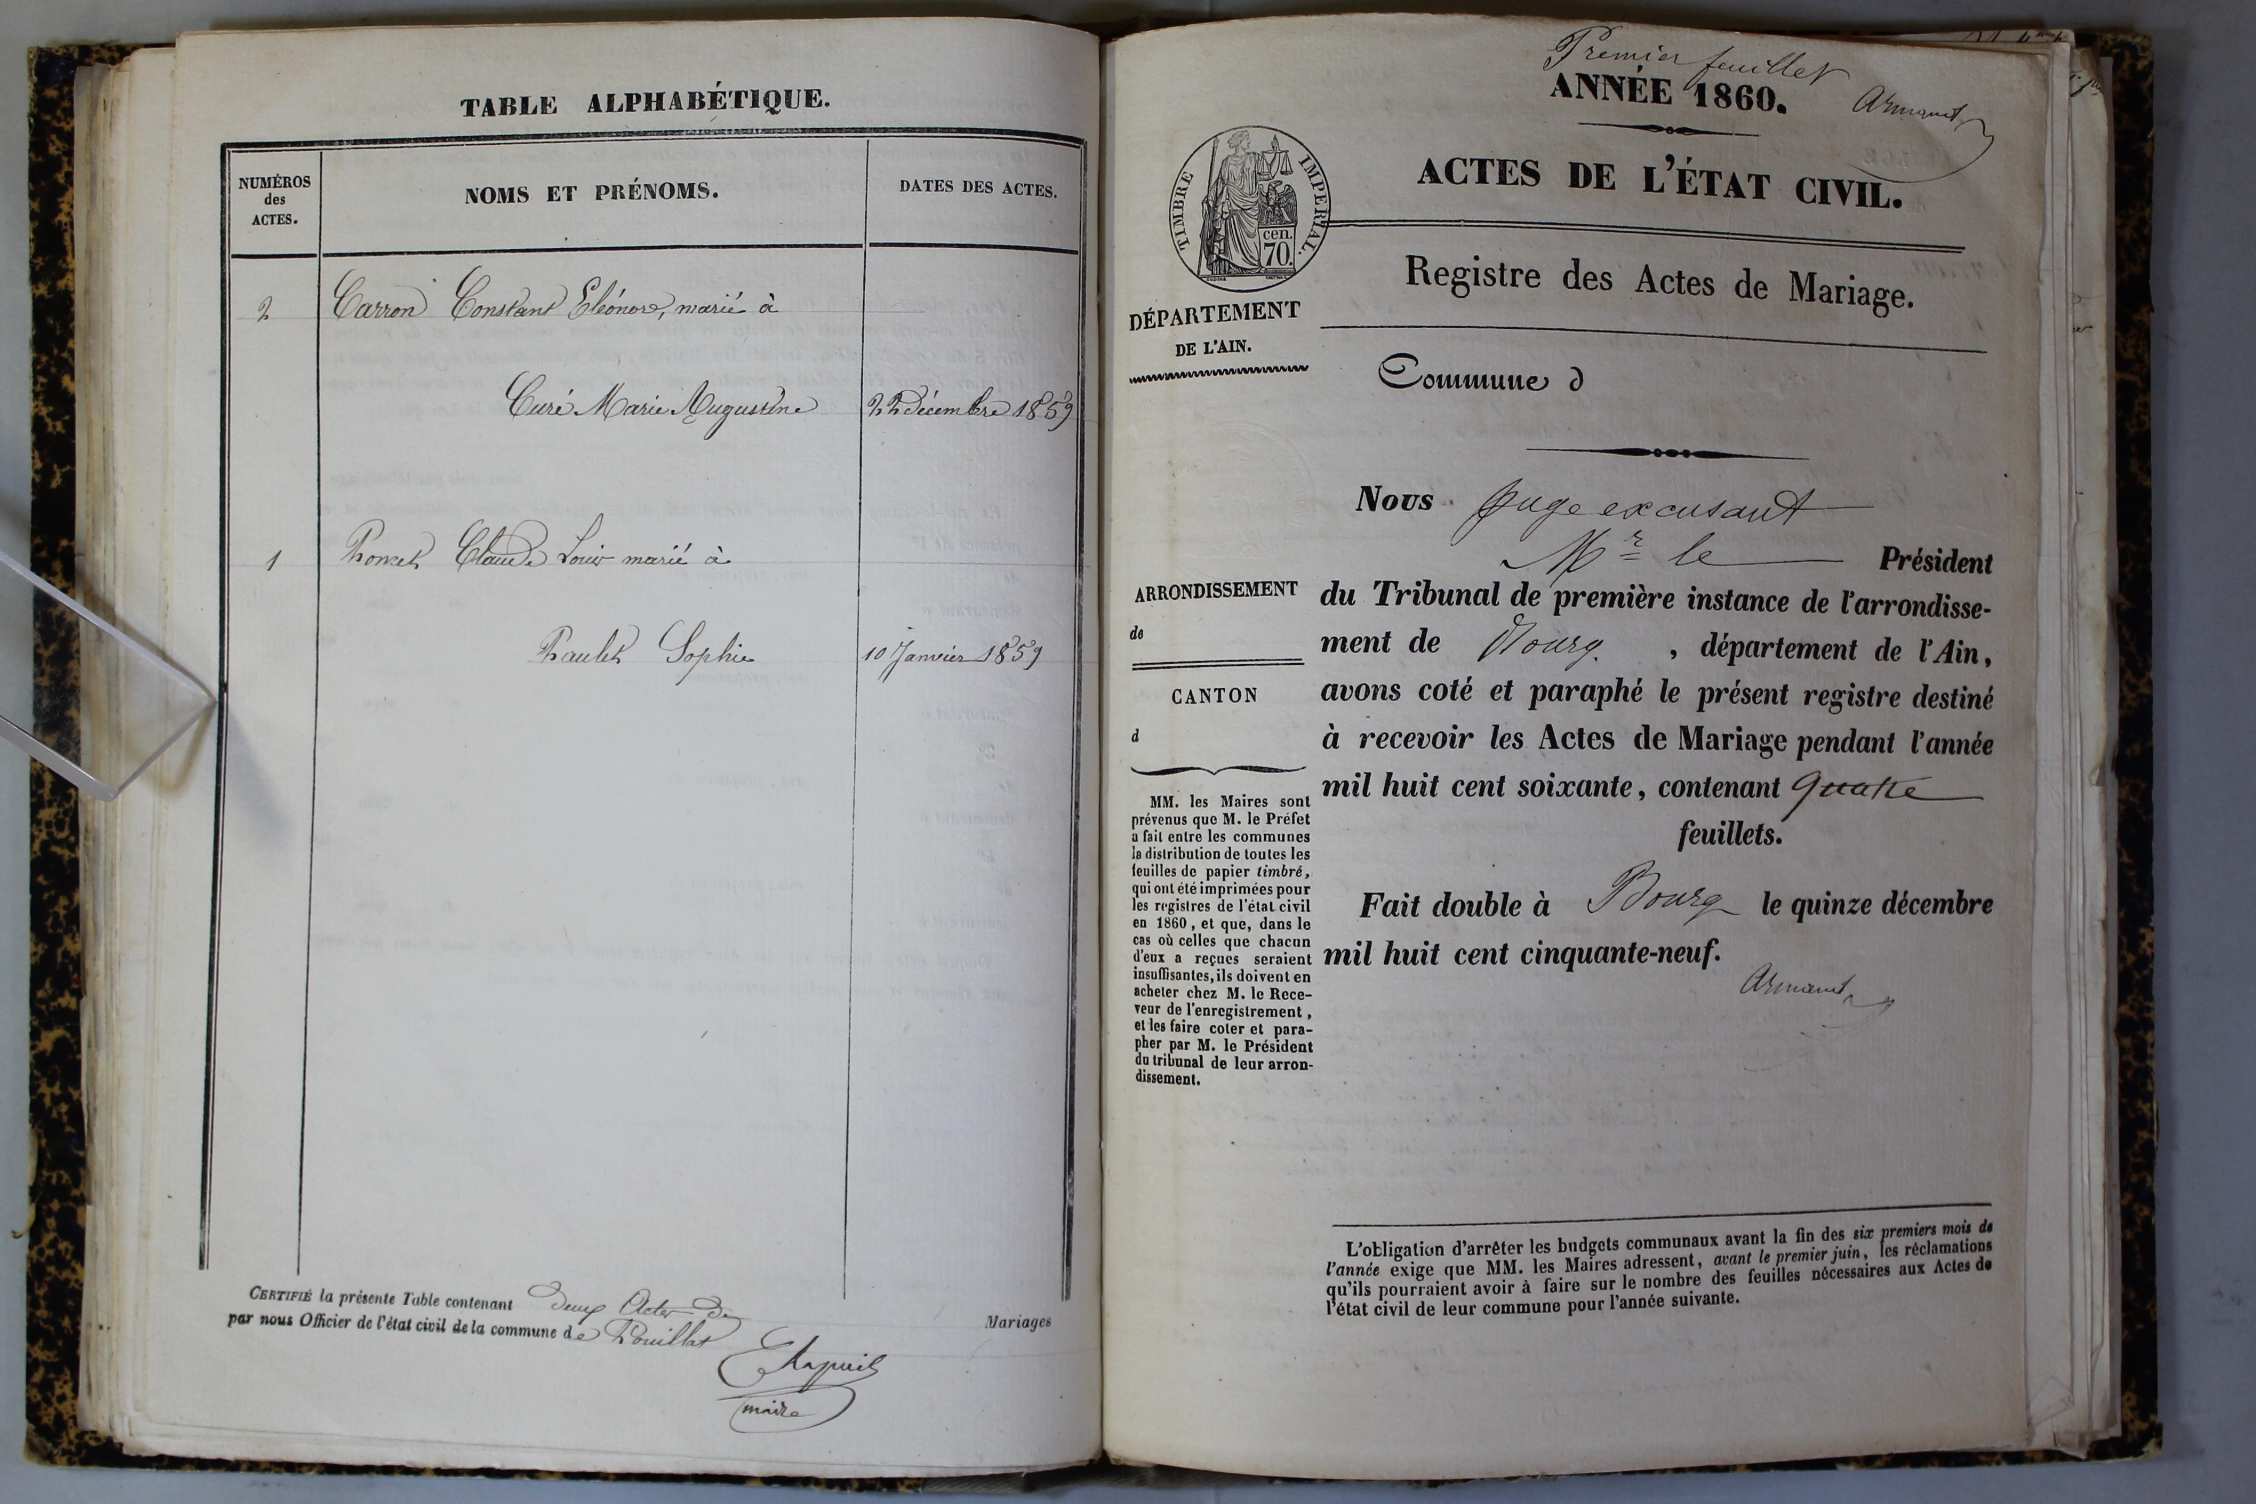 TABLE ALPHABÉTIQUE.
NUMÉROS
des
ACTES.
NOMS ET PRÉNOMS.
DATES DES ACTES.
2 Carron Constant Eléonore, marié à
Curé Marie Augustine 22 décembre 1859
1 Poncet Claude Louis marié à
Paulet Sophie 10 Janvier 1859
CERTIFIÉ la présente Table contenant deux Actes de Mariages
par nous Officier de l'état civil de la commune de Pouillat
maire
Premier feuillet
ANNÉE 1860.
Armanet
ACTES DE L'ÉTAT CIVIL.
TIMBRE IMPÉRIAL.
cen.
70.
Registre des Actes de Mariage.
DÉPARTEMENT
DE L'AIN.
Commune d
Nous Juge excusant
Mr le Président
du Tribunal de première instance de l'arrondisse-
ment de Bourg , département de l'Ain,
avons coté et paraphé le présent registre destiné
à recevoir les Actes de Mariage pendant l'année
mil huit cent soixante, contenant quatre
feuillets.
Fait double à Bourg le quinze décembre
mil huit cent cinquante-neuf.
Armanet
ARRONDISSEMENT
de
CANTON
d
MM. les Maires sont
prévenus que M. le Préfet
a fait entre les communes
la distribution de toutes les
feuilles de papier timbré,
qui ont été imprimées pour
les registres de l'état civil
en 1860, et que, dans le
cas où celles que chacun
d'eux a reçues seraient
insuffisantes, ils doivent en
acheter chez M. le Rece-
veur de l'enregistrement,
et les faire coter et para-
pher par M. le Président
du tribunal de leur arron-
dissement.
L'obligation d'arrêter les budgets communaux avant la fin des six premiers mois de
l'année exige que MM. les Maires adressent, avant le premier juin, les réclamations
qu'ils pourraient avoir à faire sur le nombre des feuilles nécessaires aux Actes de
l'état civil de leur commune pour l'année suivante.